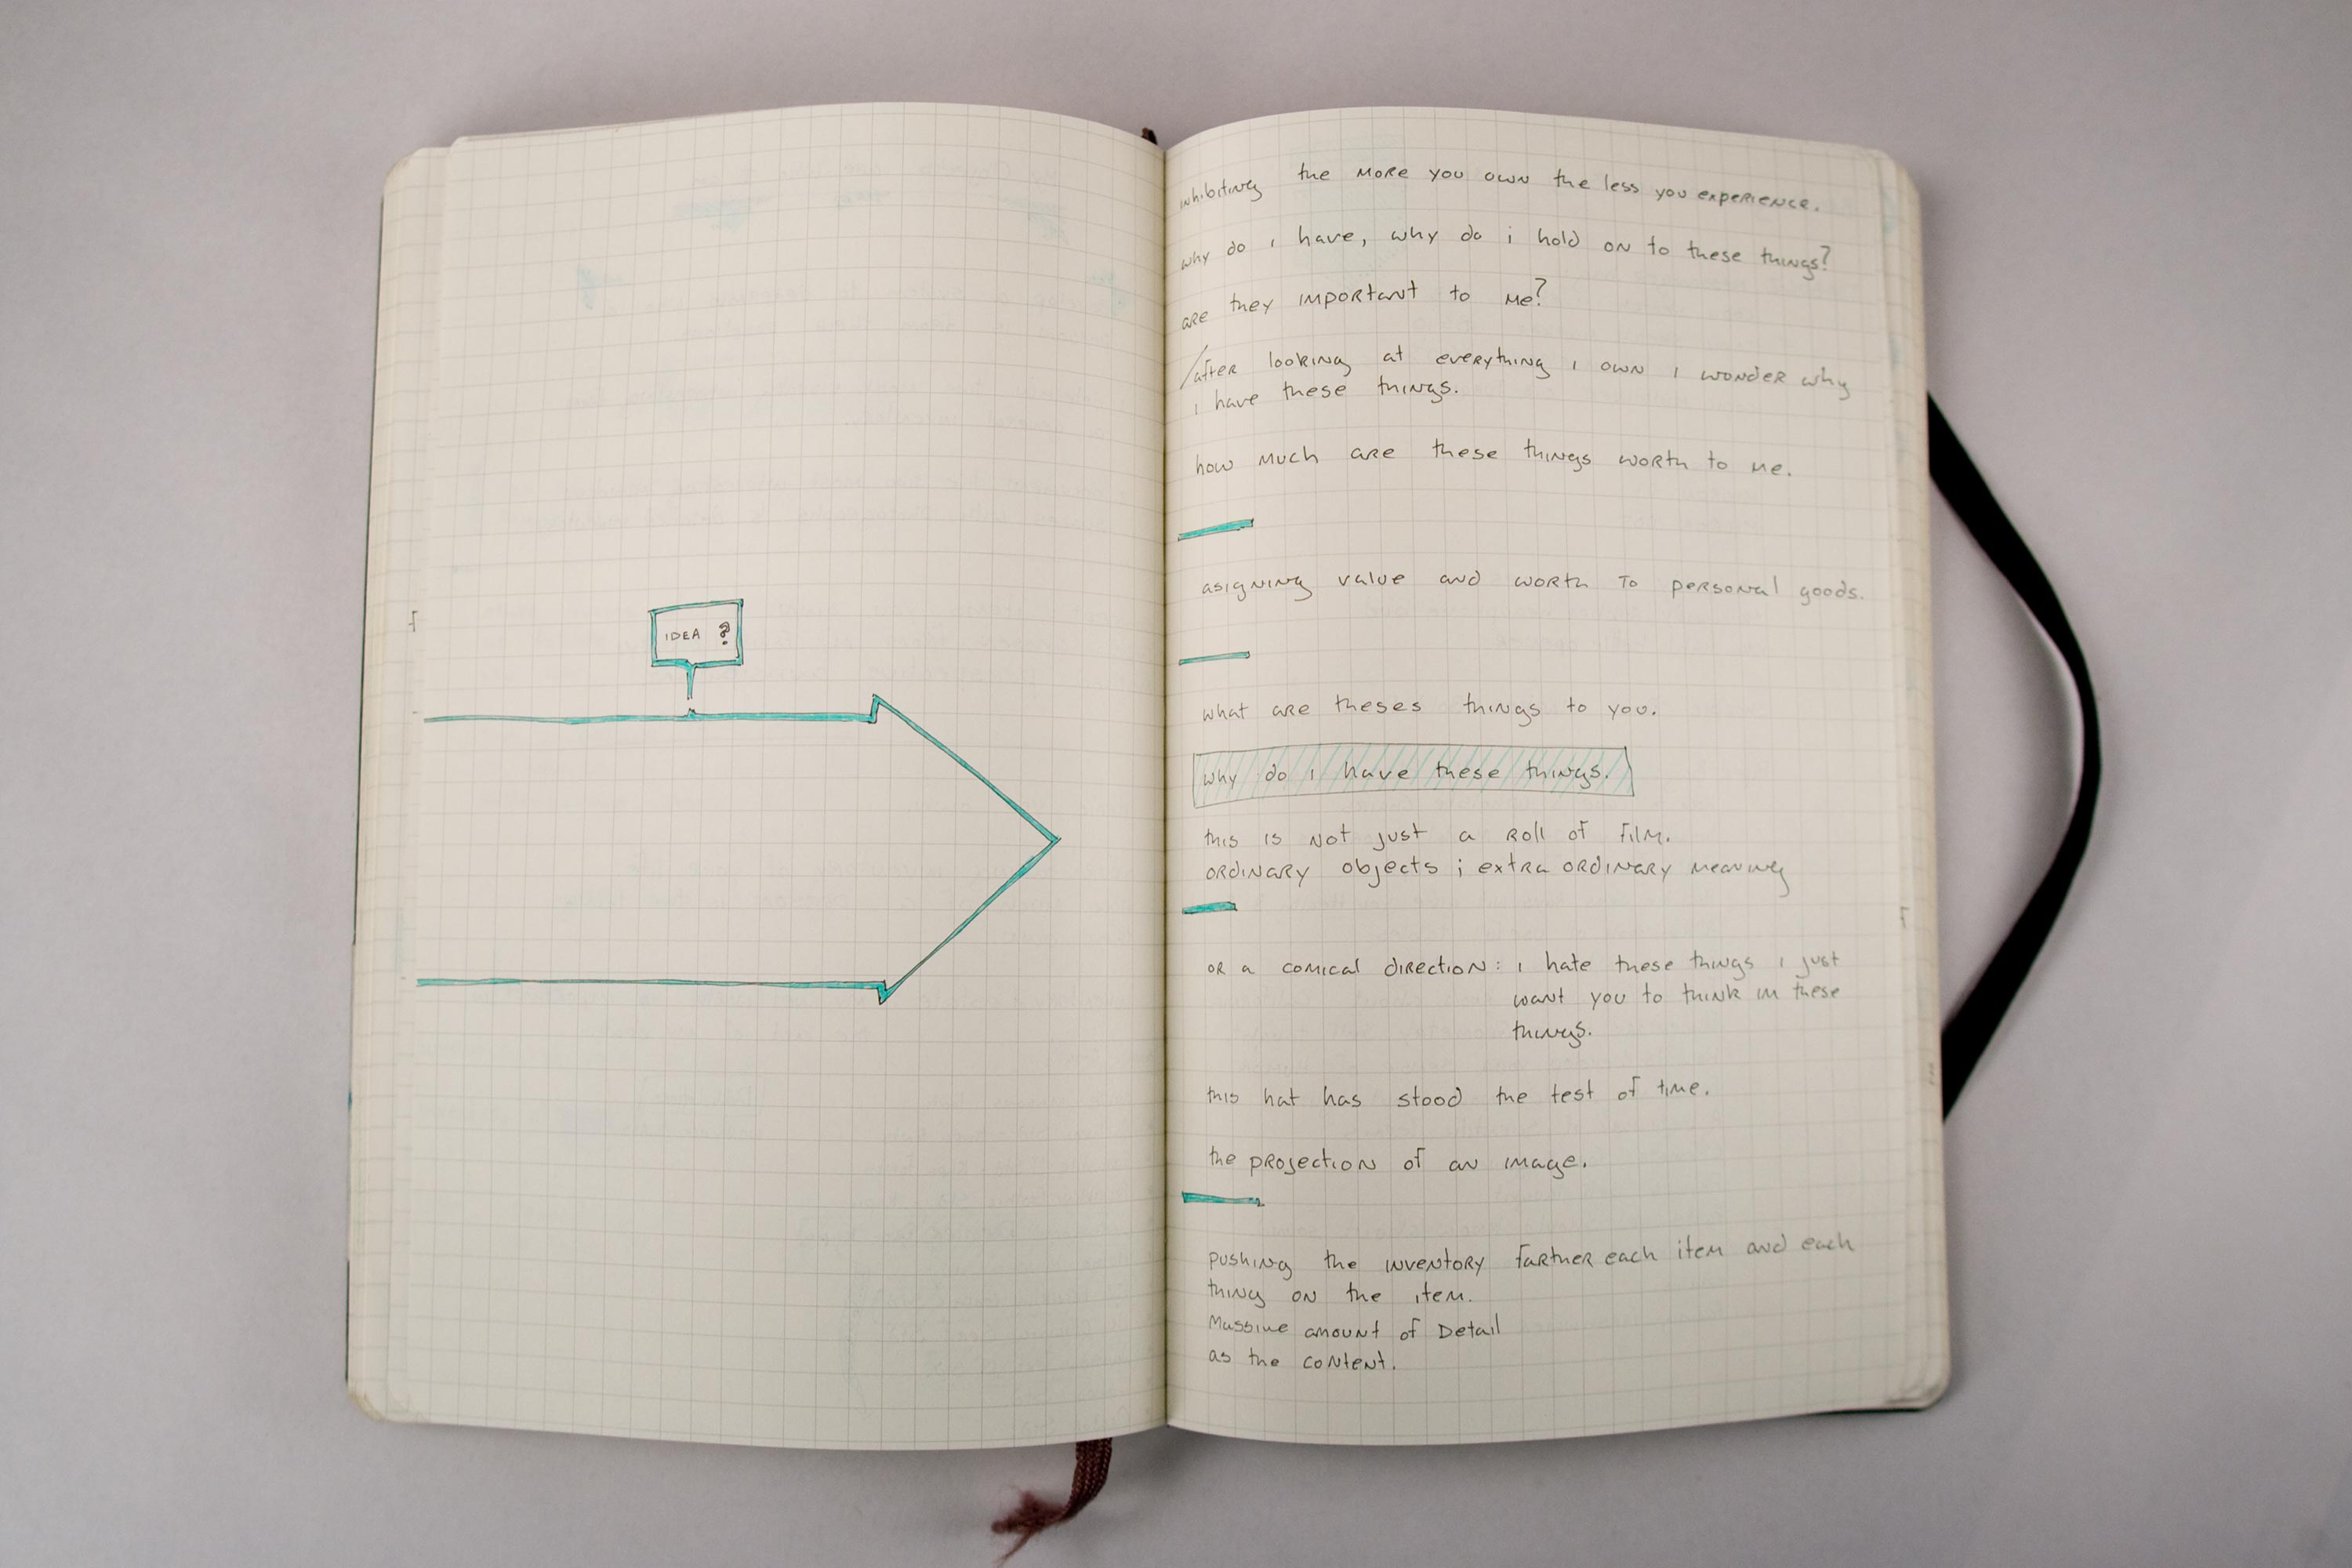 IDEA ?
inhibiting the more you own the less you experience.
why do i have, why do i hold on to these things?
are they important to me?
/after looking at everything i own i wonder why
i have these things.
how much are these things worth to me.
asigning value and worth to personal goods.
what are theses things to you.
why do i have these things.
this is not just a roll of film.
ordinary objects ; extra ordinary meaning
or a comical direction: i hate these things i just
want you to think im these
things.
this hat has stood the test of time.
the projection of an image.
pushing the inventory farther each item and each
thing on the item.
Massive amount of Detail
as the content.